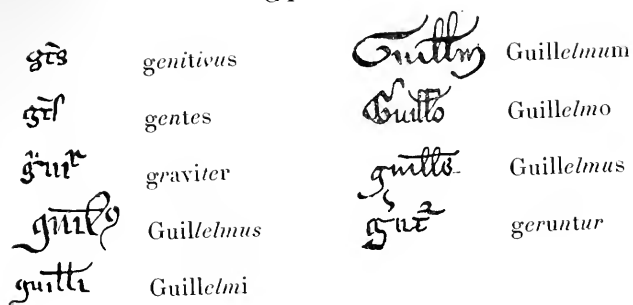 gt̄s genitivus
gt̄s gentes
guit graviter
guill Guillelmus
guilli Guillelmi
Guillm Guillelmum
Guillo Guillelmo
guills Guillelmus
gut geruntur